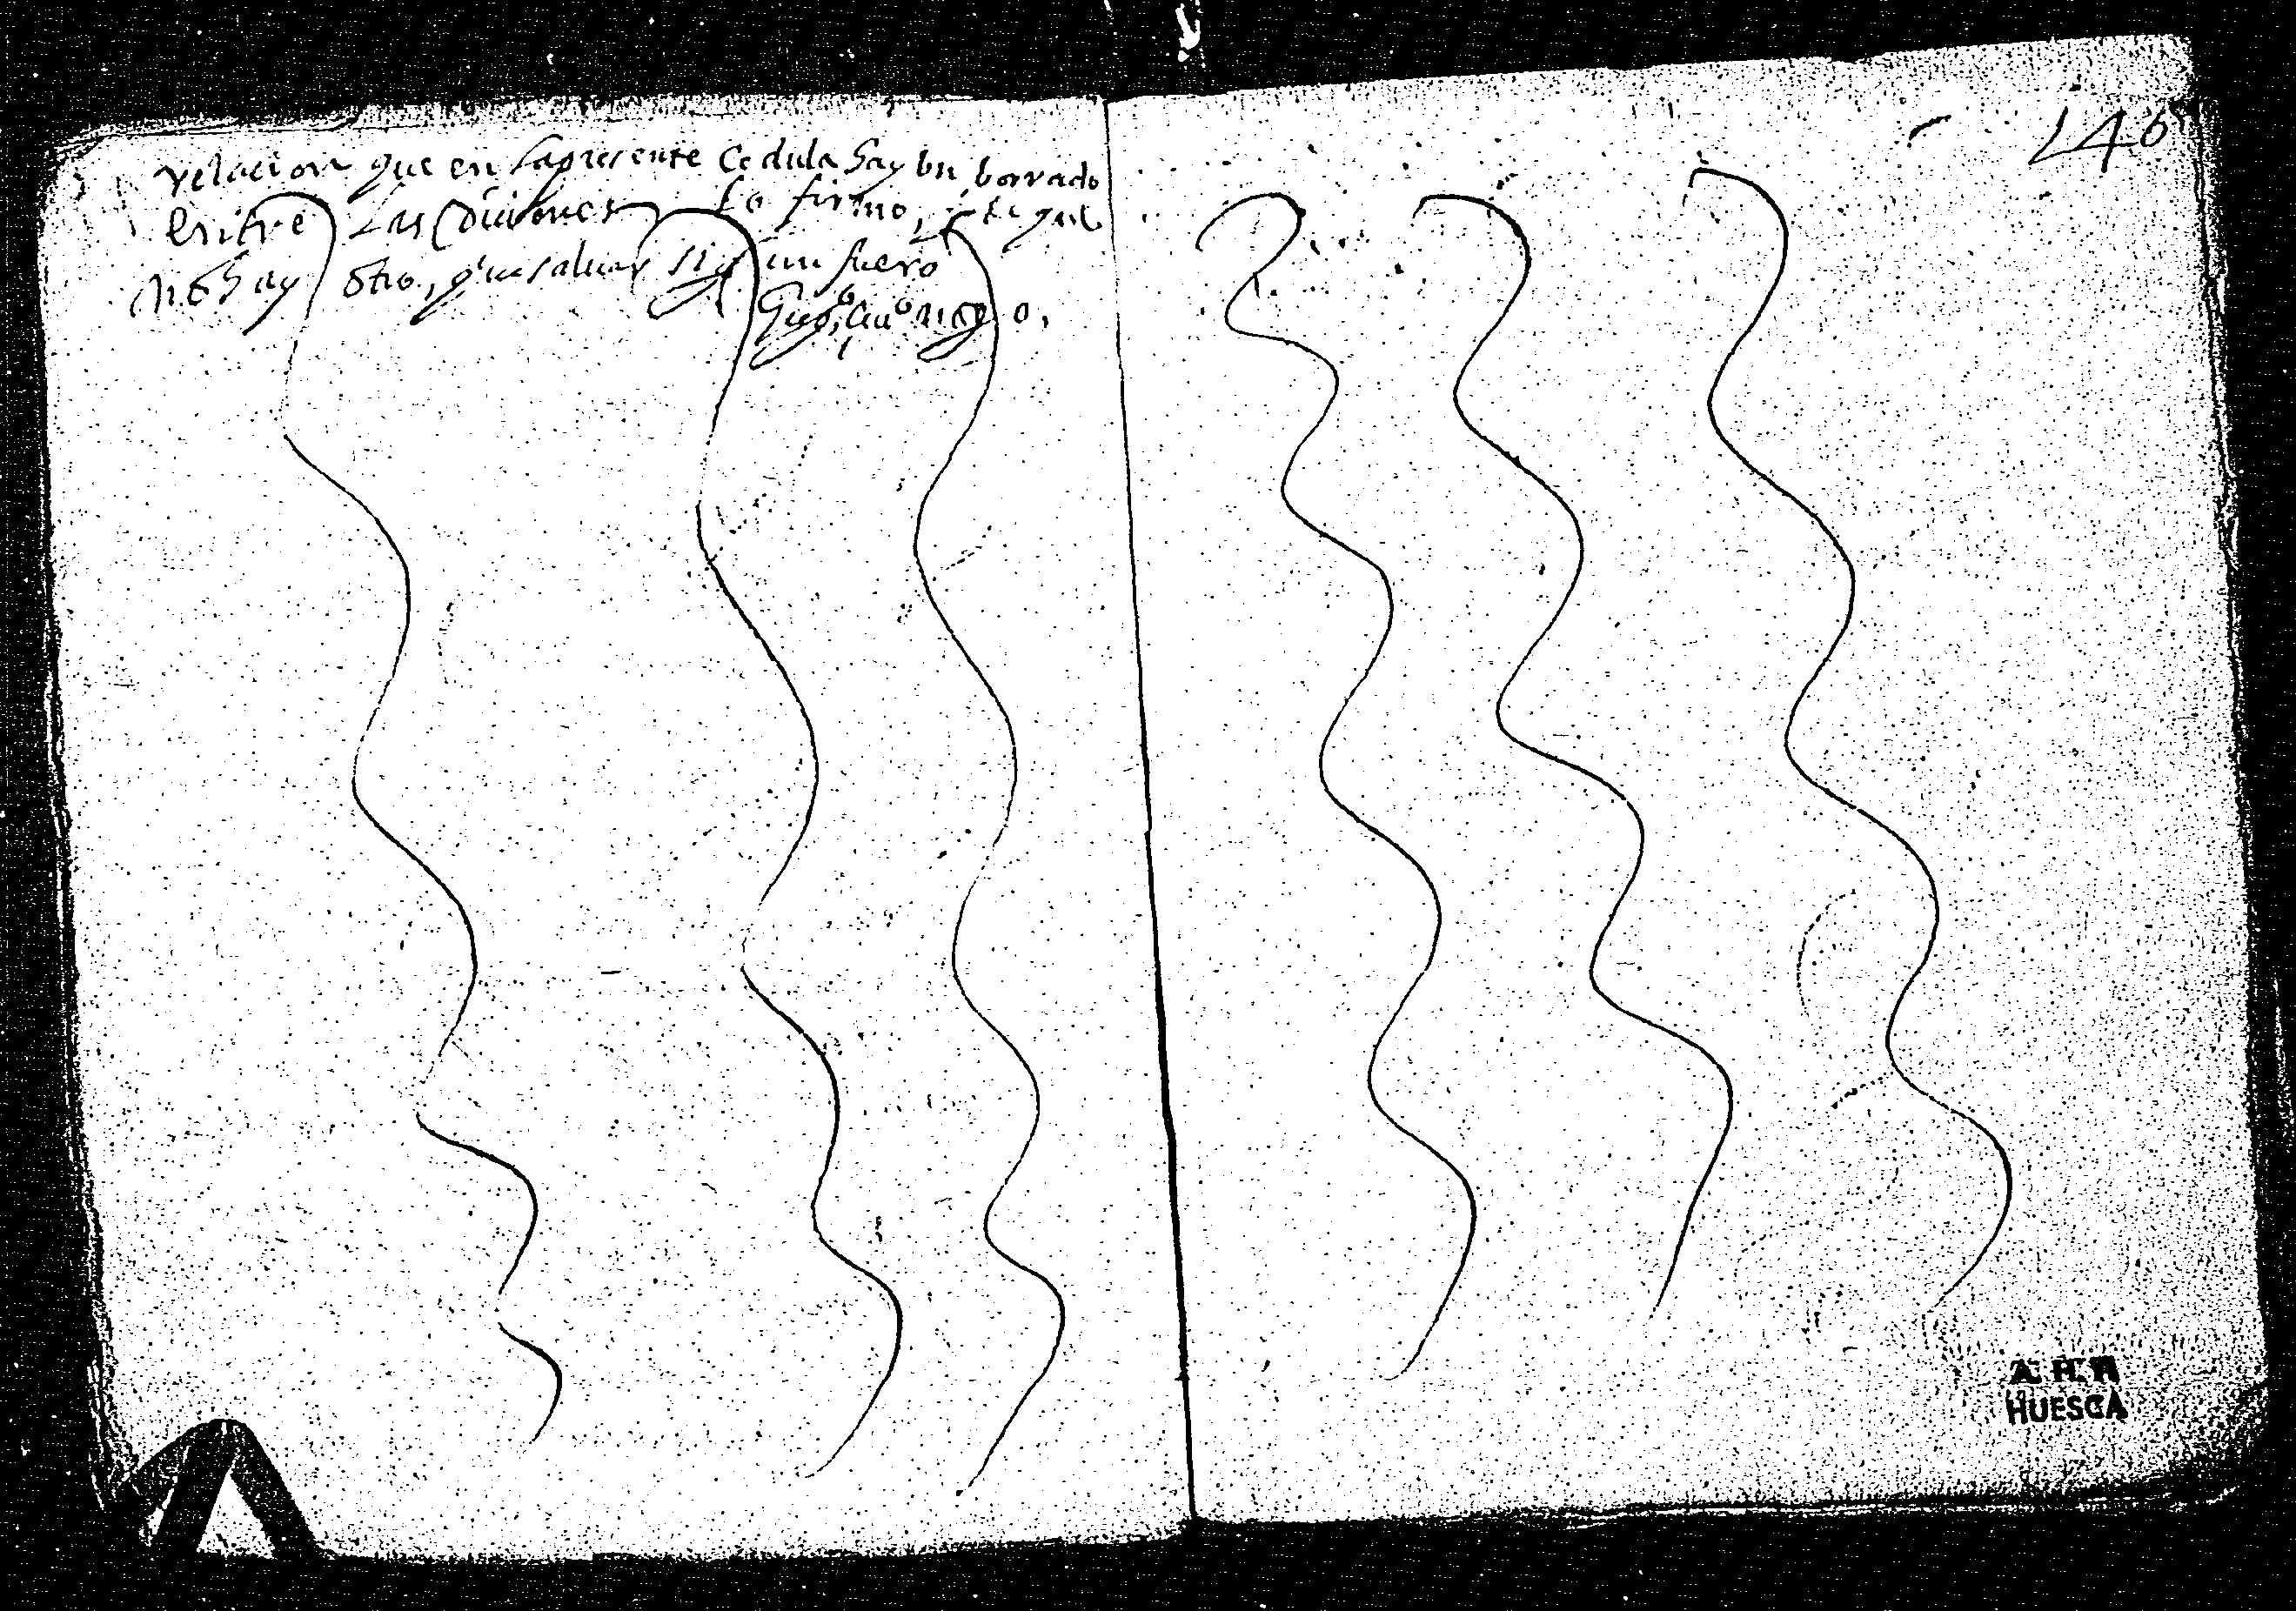 relacion que en la presente Cedula hay bn borrado
Entre las Diciones lo firmo, et que
no hay otro, que saluar sig un fuero
146
A. H. P.
HUESCA